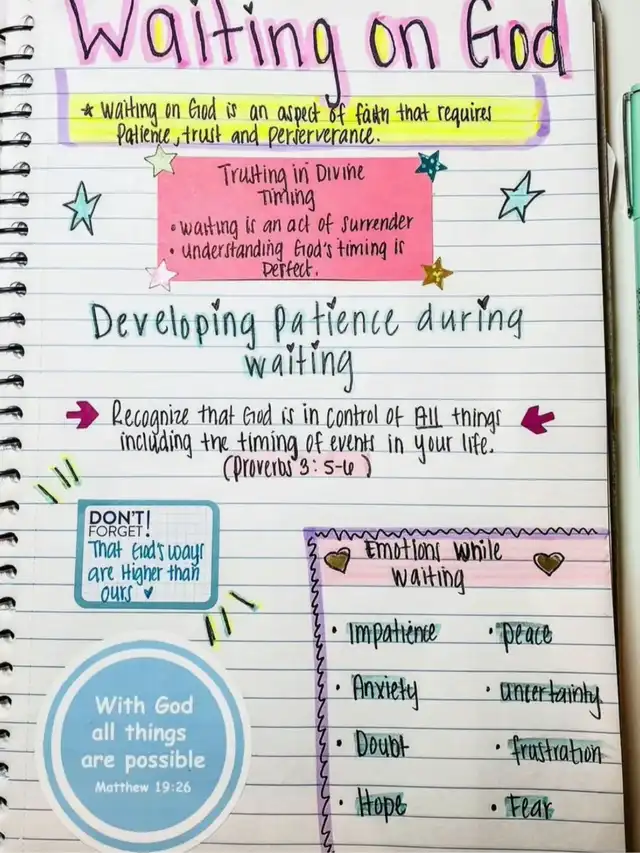 Waiting on God
* Waiting on God is an aspect of faith that requires
Patience, trust and Perserverance.
Trusting in Divine
Timing
• waiting is an act of surrender
• understanding God's timing is
Perfect.
Developing Patience during
waiting
Recognize that God is in control of All things
including the timing of events in your life.
(Proverbs 3:5-6)
DON'T!
FORGET!
That God's ways
are Higher than
ours
With God
all things
are possible
Matthew 19:26
Emotions While
Waiting
• Impatience
• Anxiety
• Doubt
• Hope
• peace
• uncertainty
• frustration
• Fear